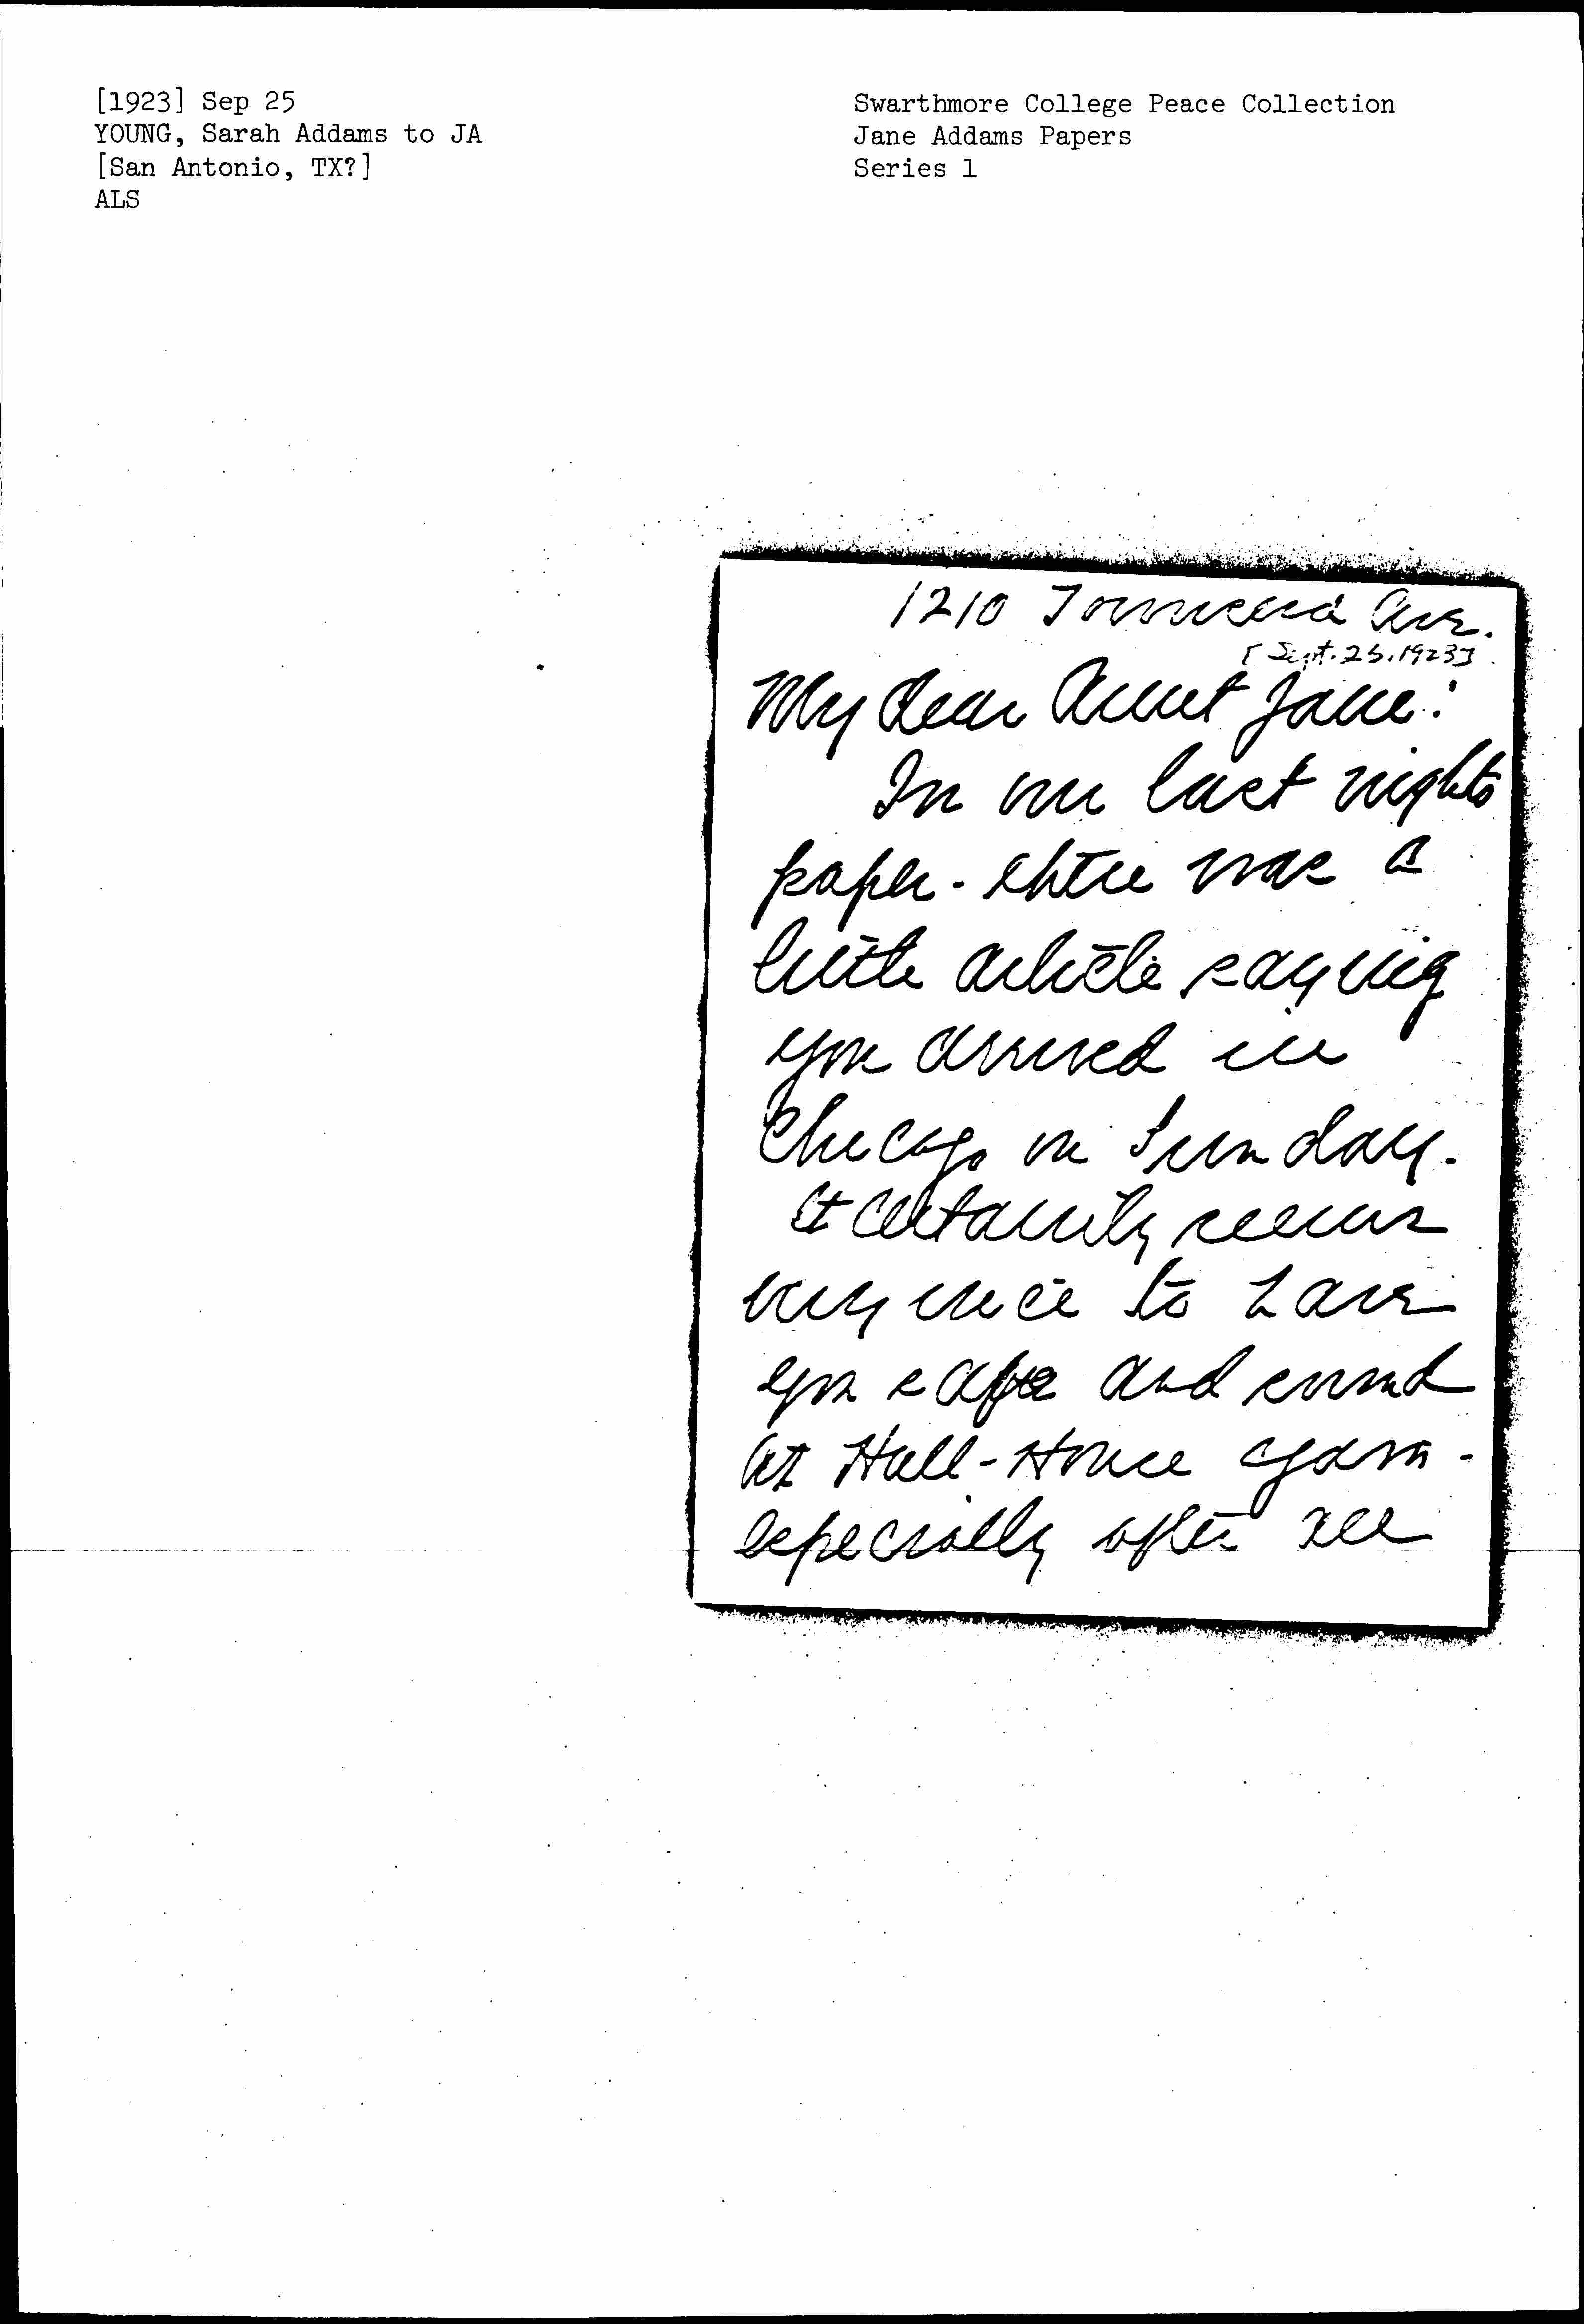 [1923] Sep 25
YOUNG, Sarah Addams to JA
[San Antonio, TX?]
ALS
Swarthmore College Peace Collection
Jane Addams Papers
Series 1
1210 Townsend Ave.
[Sept. 25, 1923]
My dear Aunt Jane:
In our last nights
paper - there was a
little article saying
you arrived in
Chicago on Sunday.
It certainly seems
very nice to have
you safe and sound
at Hull-House again -
especially after all